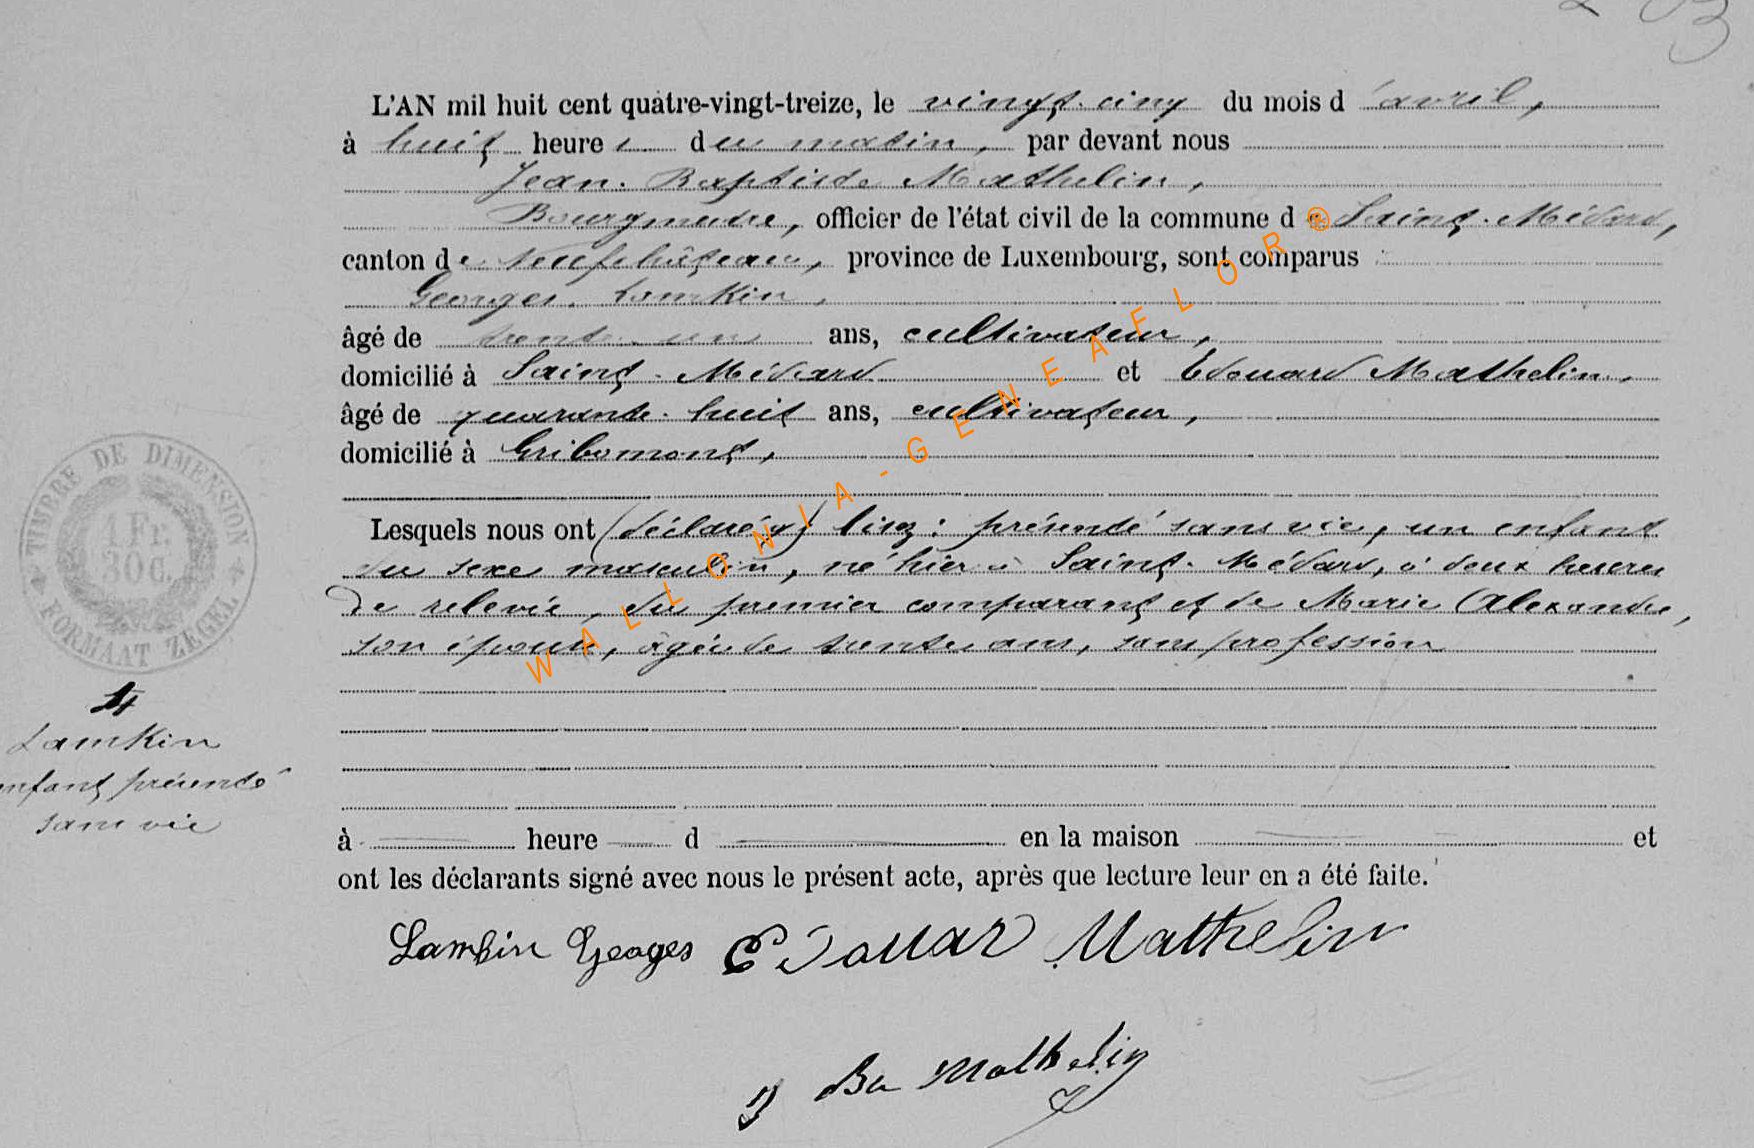 203
L'AN mil huit cent quatre-vingt-treize, le vingt-cinq du mois d'avril,
à huit heures du matin, par devant nous
Jean-Baptiste Mathelin,
Bourgmestre, officier de l'état civil de la commune de Saint-Médard,
canton de Neufchâteau, province de Luxembourg, sont comparus
Georges Lamkin,
âgé de trente-un ans, cultivateur,
domicilié à Saint-Médard et Edouard Mathelin,
âgé de quarante-huit ans, cultivateur,
domicilié à Gribomont,
Lesquels nous ont (déclaré q) lisez: présenté sans vie, un enfant
du sexe masculin, né hier à Saint-Médard, à deux heures
de relevée, du premier comparant et de Marie Alexandre,
son épouse, âgée de trente ans, sans profession
à heure d en la maison et
ont les déclarants signé avec nous le présent acte, après que lecture leur en a été faite.
Lamkin Georges Edouard Mathelin
J Bte Mathelin
TIMBRE DE DIMENSION
1 Fr.
30 C.
FORMAAT ZEGEL
4
Lamkin
enfant présenté
sans vie
WALLONIA-GENEAFLOR®